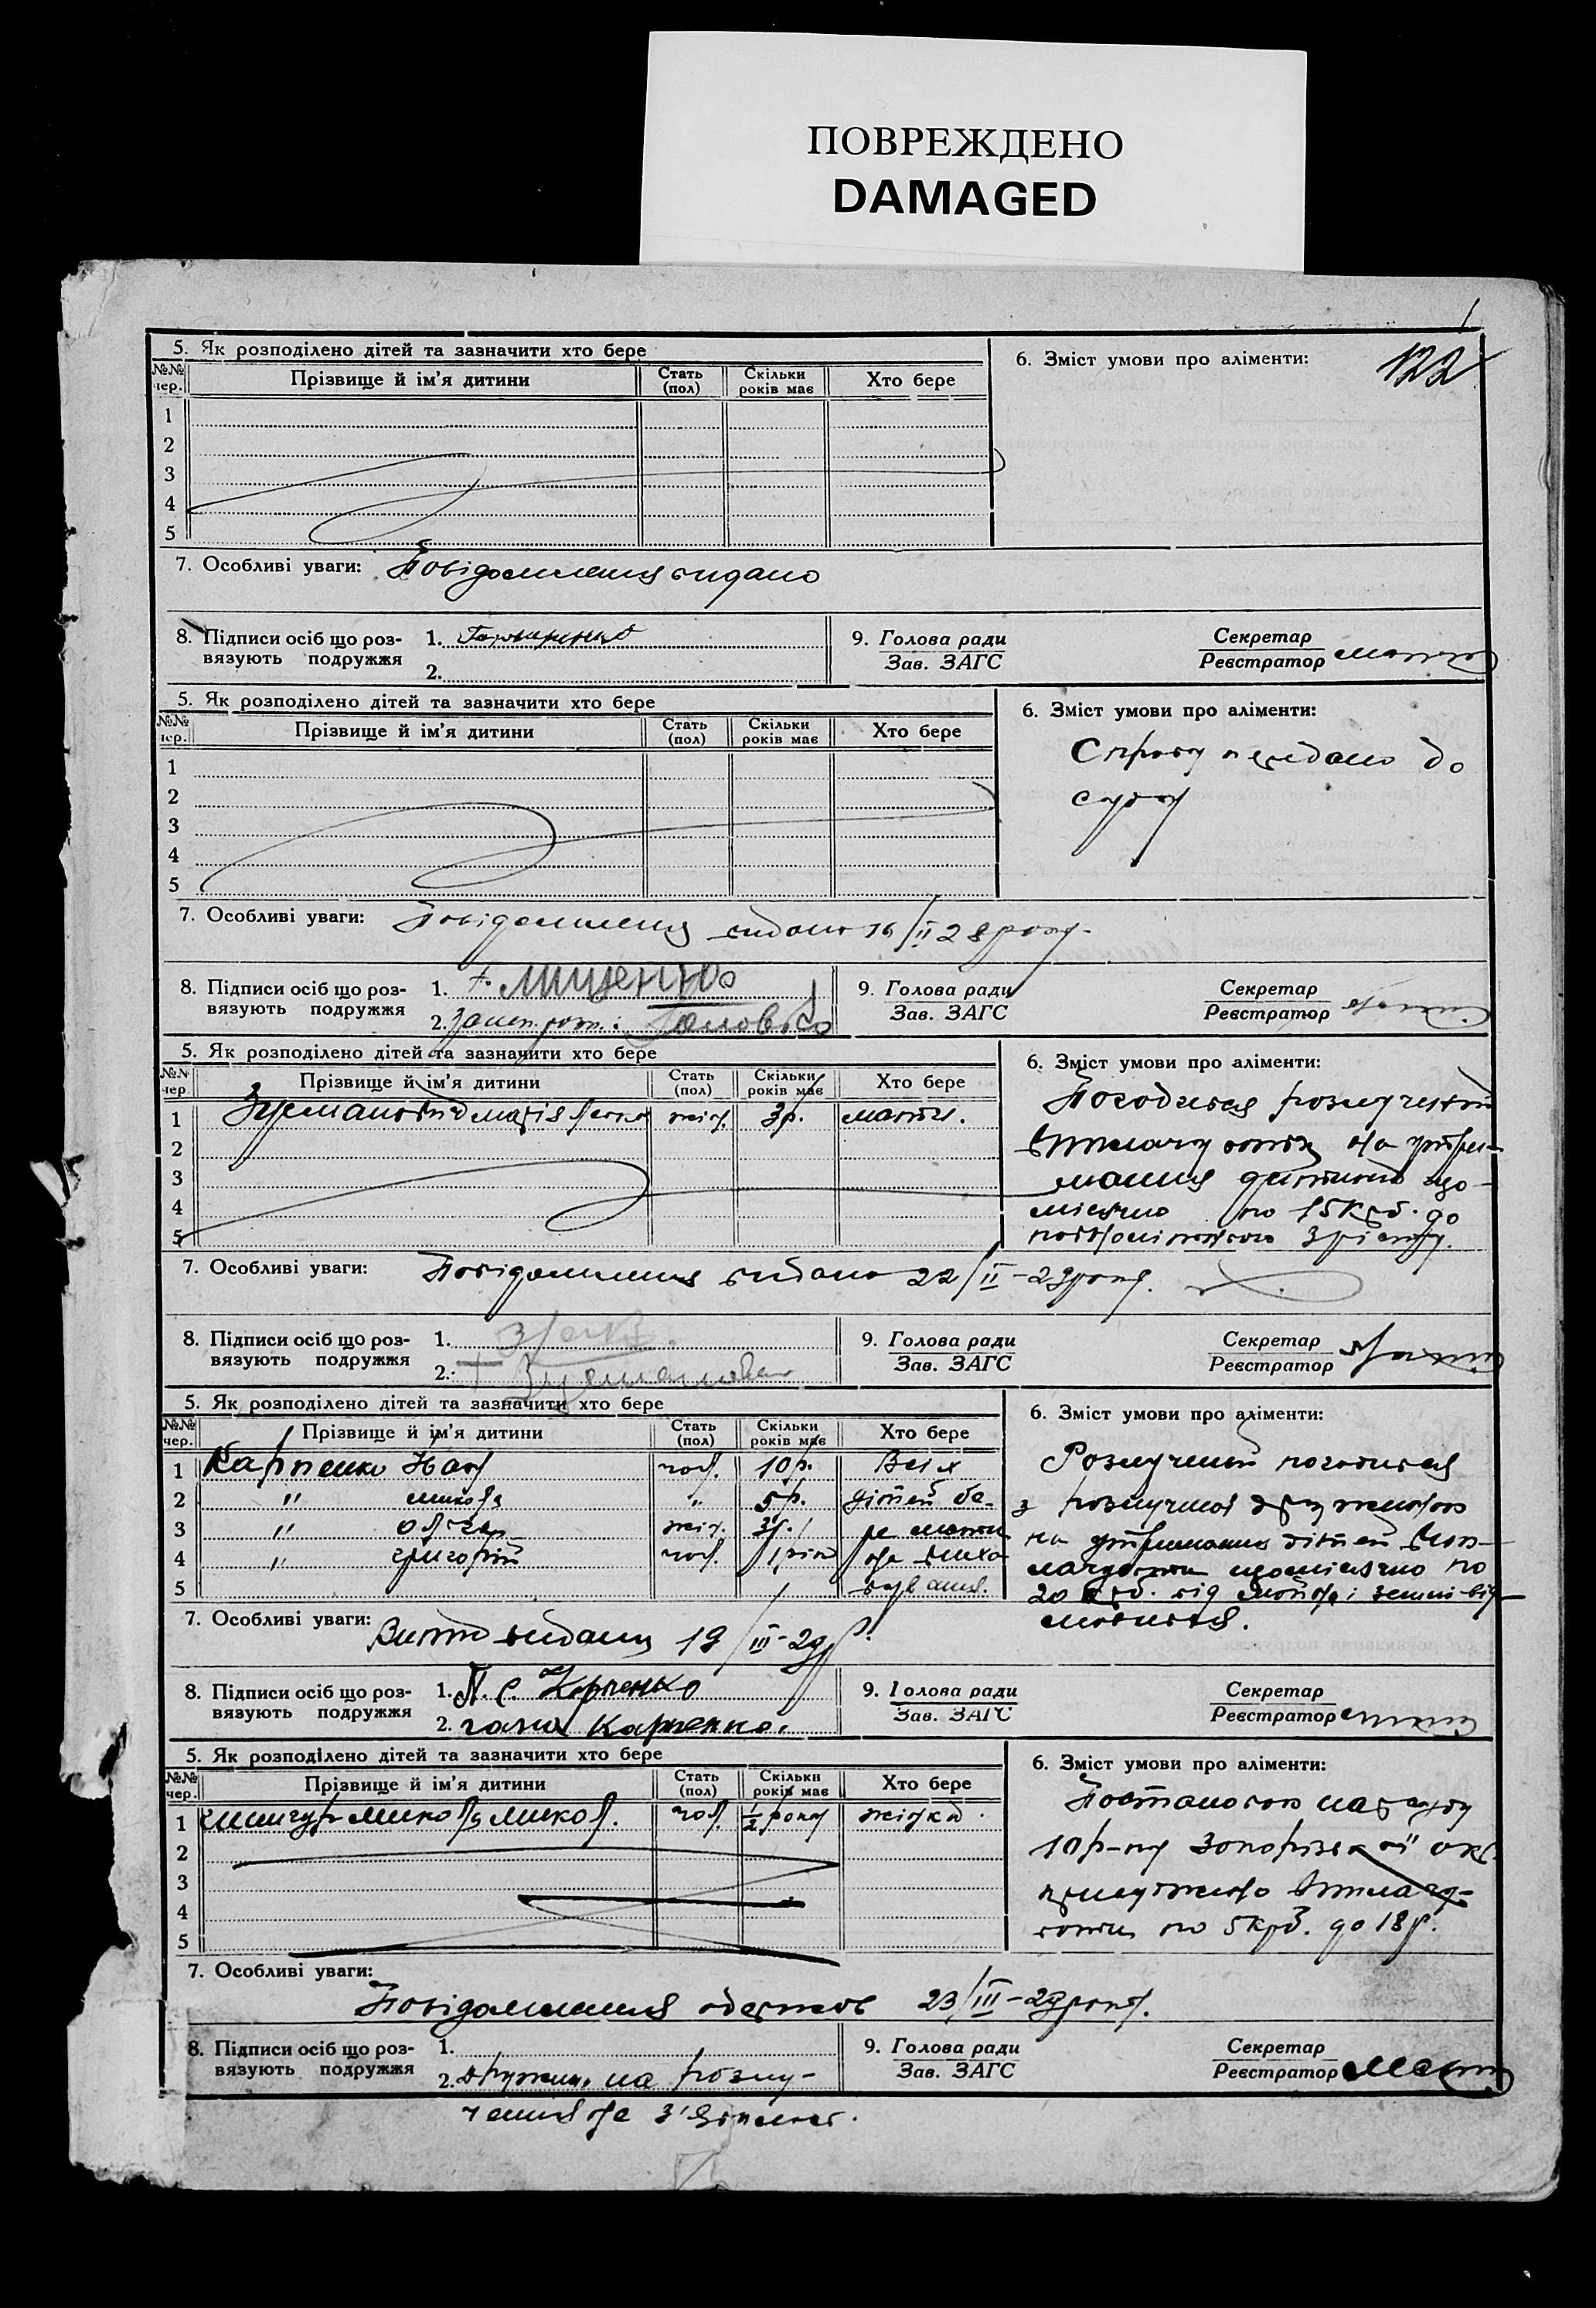 ПОВРЕЖДЕНО
DAMAGED
122
5. Як розподілено дітей та зазначити хто бере
6. Зміст умови про аліменти:
№№ чер. Прізвище й ім'я дитини Стать (пол) Скільки років має Хто бере
1
2
3
4
5
7. Особливі уваги: Повідомлення видано
8. Підписи осіб що роз-
вязують подружжя
1.
2.
9. Голова ради
Зав. ЗАГС
Секретар
Реєстратор
5. Як розподілено дітей та зазначити хто бере
6. Зміст умови про аліменти:
№№ чер. Прізвище й ім'я дитини Стать (пол) Скільки років має Хто бере
Справу передано до
суду
1
2
3
4
5
7. Особливі уваги: Повідомлення видано 16/II 28 року
8. Підписи осіб що роз-
вязують подружжя
1. Мищенко
2.
9. Голова ради
Зав. ЗАГС
Секретар
Реєстратор
5. Як розподілено дітей та зазначити хто бере
6. Зміст умови про аліменти:
№№ чер. Прізвище й ім'я дитини Стать (пол) Скільки років має Хто бере
1 жін. 3р. мати.
2
3
4
5
Погодився розлучений
виплачувати на утри-
мання дитини що-
місячно по 15 крб. до
повнолітнього зросту.
7. Особливі уваги: Повідомлення видано 22/II-29 року.
8. Підписи осіб що роз-
вязують подружжя
1.
2.
9. Голова ради
Зав. ЗАГС
Секретар
Реєстратор
5. Як розподілено дітей та зазначити хто бере
6. Зміст умови про аліменти:
№№ чер. Прізвище й ім'я дитини Стать (пол) Скільки років має Хто бере
1 Карпенко Іван чол. 10р. Всіх
2 " Микола " 5р. дітей бе-
3 " Ольга жін. 3р. ре мати
4 " Григорій чол. 1 рік на виха-
5 вання.
Розлучений погодився
з розлученою дружиною
на утримання дітей випла-
чувати щомісячно по
20 крб. від майна і землі від-
мовився.
7. Особливі уваги: Витяг видано 19/III-29р.
8. Підписи осіб що роз-
вязують подружжя
1. П. С. Карпенко
2. Гана Карпенко.
9. Голова ради
Зав. ЗАГС
Секретар
Реєстратор
5. Як розподілено дітей та зазначити хто бере
6. Зміст умови про аліменти:
№№ чер. Прізвище й ім'я дитини Стать (пол) Скільки років має Хто бере
1 Микола Микол. чол. 1/2 року жінка
2
3
4
5
Постановою нарсуду
10 р-ну Запорізької окр.
присуджено виплачу-
вати по 5 крб. до 18 р.
7. Особливі уваги:
Повідомлення одержав 23/III-29 року.
8. Підписи осіб що роз-
вязують подружжя
1.
2. Дружина на розлу-
чення не з'явилась.
9. Голова ради
Зав. ЗАГС
Секретар
Реєстратор